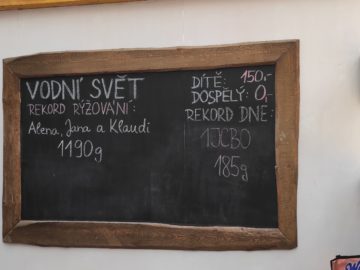 VODNÍ SVĚT
REKORD RÝŽOVÁNÍ:
Alena, Jana a Klaudi
1190g
DÍTĚ: 150,-
DOSPĚLÝ: 0,-
REKORD DNE:
1JCBO
185g